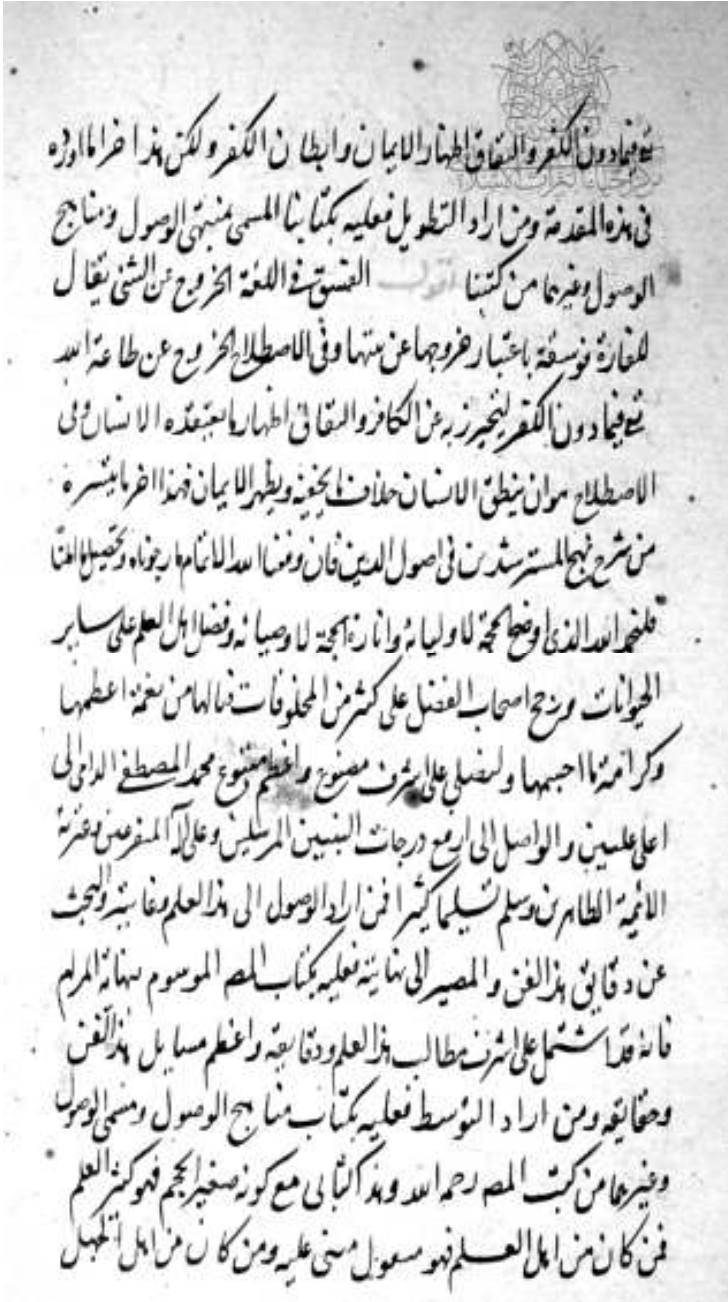 تع فيما دون الكفر والنفاق اظهار الايمان وابطان الكفر ولكن هذا اخر ما اورده
فى هذه المقدمة ومن اراد التطويل فعليه بكتابنا المسمى بمنتهى الوصول ومناهج
الوصول وغيرهما من كتبنا اقول الفسق فى اللغة الخروج عن الشئ يقال
للفارة فويسقة باعتبار خروجها عن بيتها وفى الاصطلاح الخروج عن طاعة الله
تع فيما دون الكفر ليتحرز به عن الكافر والنفاق اظهار ما يعتقده الانسان وفى
الاصطلاح هو ان ينطق الانسان خلاف ما يخفيه ويظهر الايمان فهذا اخر ما تيسر
من شرح نهج المسترشدين فى اصول الدين فان وفقنا الله لاتمام ما رجوناه وتحصيل
فلنحمد الله الذى اوضح الحجة لاوليائه وانارة المحجة لاوصيائه وفضل اهل العلم على ساير
الحيوانات ورجح اصحاب الفضل على كثير من المخلوقات فيالها من نعمة اعظمها
وكرامة ما احسبها ولنصلى على اشرف مصنوع واعظم محمد المصطفى الداعى الى
اعلى عليين والواصل الى ارفع درجات النبيين المرسلين وعلى آله المتفرعين وعترته
الائمة الطاهرين وسلم تسليما كثيرا فمن اراد الوصول الى هذا العلم وغايته والبحث
عن دقايق هذا الفن والمصير الى نهايته فعليه بكتاب المصـ الموسوم بنهاية المرام
فانه قد اشتمل على اشرف مطالب هذا العلم ودقايقه واعظم مسايل هذا الفن
وحقايقه ومن اراد التوسط فعليه بكتاب مناهج الوصول ومنتهى الوصول
وغيرهما من كتب المصـ رحمه الله وهذا كتابى مع كونه صغير الحجم فهو كثير العلم
فمن كان من اهل العلم فهو معول مبنى عليه ومن كان من اهل الجهل